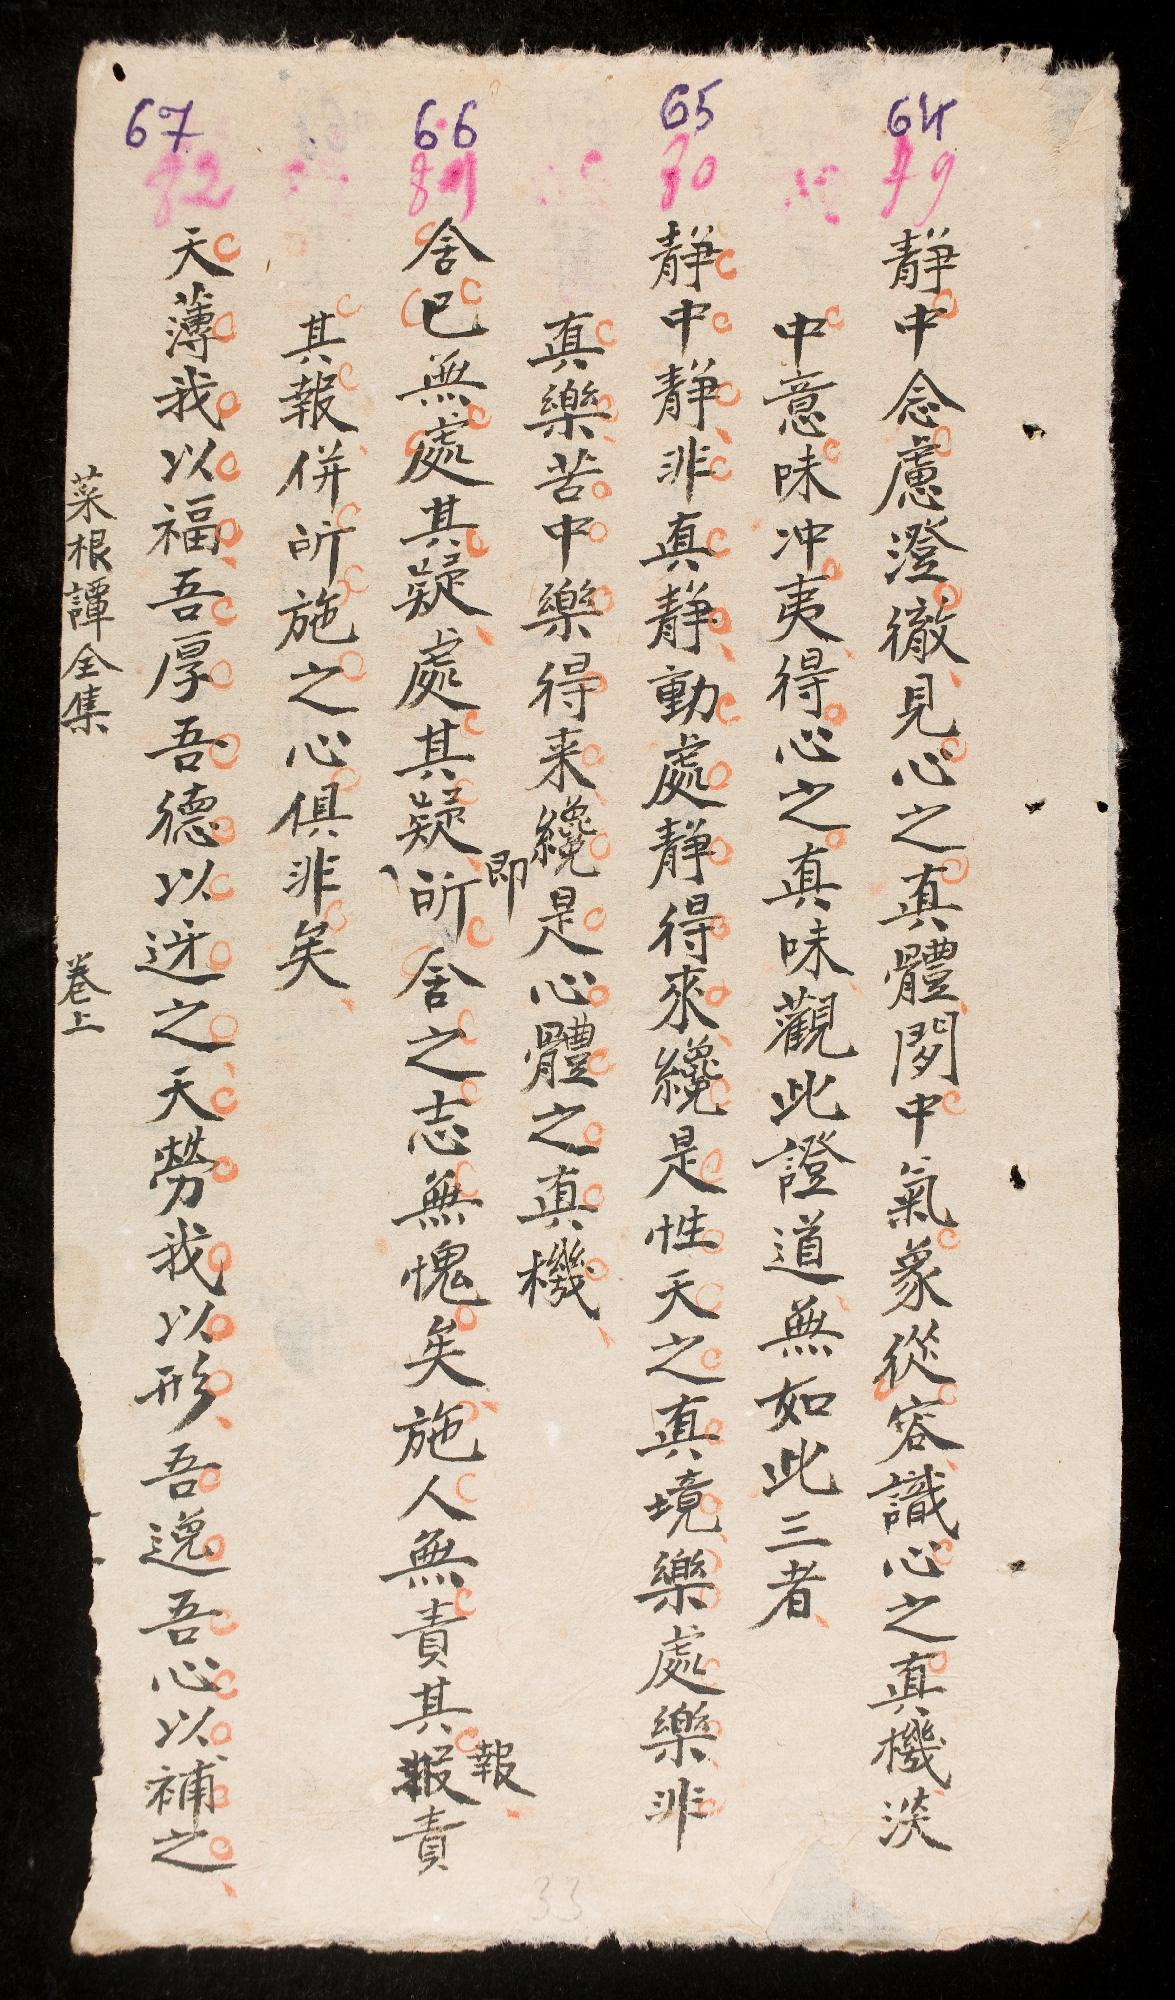 64
79
靜中念慮澄徹見心之真體閒中氣象從容識心之真機淡
中意味冲夷得心之真味觀此證道無如此三者
65
80
靜中靜非真靜動處靜得來纔是性天之真境樂處樂非
真樂苦中樂得来纔是心體之真機
66
81
舍已無處其疑處其疑即所舍之志無愧矣施人無責其報責
其報併所施之心俱非矣
67
82
天薄我以福吾厚吾德以迓之天勞我以形吾逸吾心以補之
菜根譚全集 卷上
33